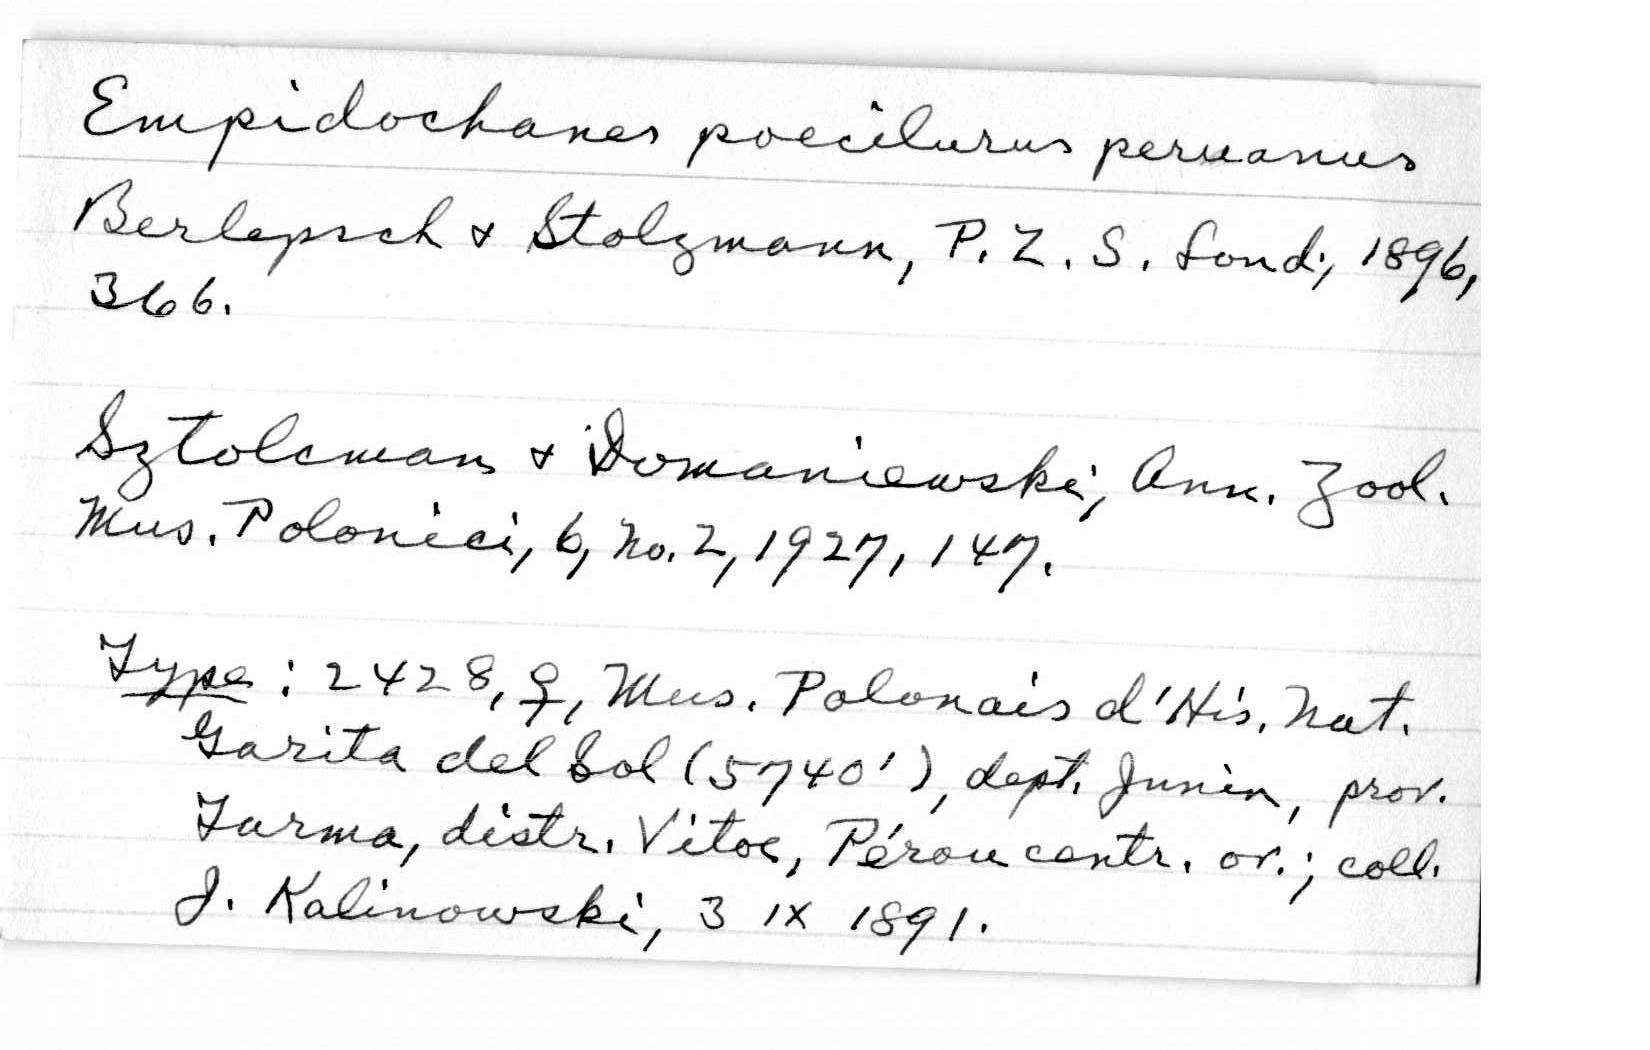 Empidochanes poecilurus peruanus
Berlepsch & Stolzmann, P. Z. S. Lond., 1896,
366.
Sztolcman & Domaniewski, Ann. Zool.
Mus. Polonici, 6, No. 2, 1927, 147.
Type : 2428, ♀, Mus. Polonais d'His. Nat.
Garita del Sol (5740'), dept. Junin, prov.
Tarma, distr. Vitoc, Pérou centr. or.; coll.
J. Kalinowski, 3 IX 1891.